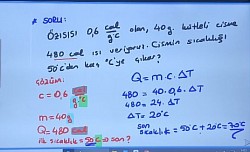 * SORU:
ÖZISISI 0,6 cal/g°C olan, 40g. kütleli cisme
480 cal ısı veriyoruz. Cismin sıcaklığı
50°C'den kaç °C'ye çıkar?
ÇÖZÜM:
c = 0,6 cal/g°C
m = 40g
Q = 480 cal
ilk sıcaklık = 50°C son?
Q = m.c.ΔT
480 = 40.0,6.ΔT
480 = 24.ΔT
ΔT = 20°C
son sıcaklık = 50°C + 20°C = 70°C